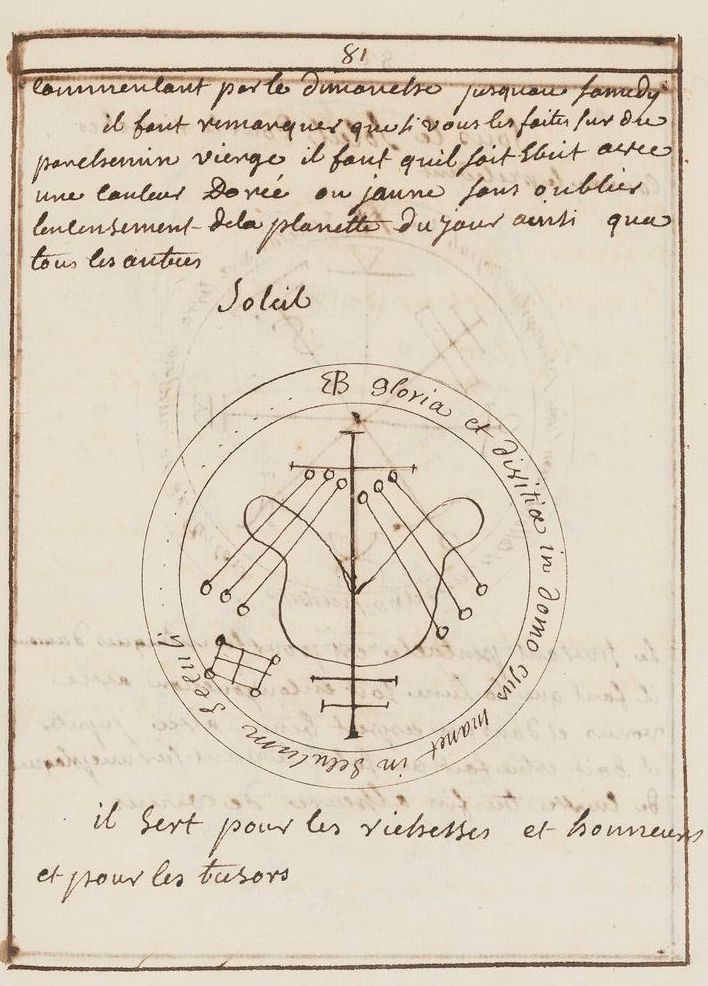 81
commencant par le dimanche jusquau samedy
il faut remarquer que si vous les faites sur du
parchemin vierge il faut quil soit Ecrit avec
une couleur Dorée ou jaune sans oublier
lencensement de la planette du jour ainsi qua
tous les autres
Soleil
gloria et divitiæ in domo ejus manet in seculum seculi
il sert pour les richesses et honneurs
et pour les tresors